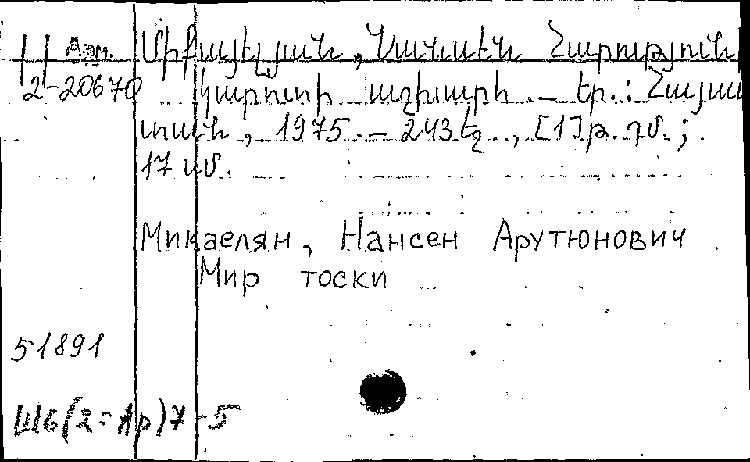 Арм. Միքայելյան, Նանսեն Հարություն
2-20670 Կարոտի աշխարհ. — Եր.: Հայաս
տան, 1975. — 243 էջ., [1]թ. դմ.;
17 սմ.
Микаелян, Нансен Арутюнович
Мир тоски
51891
Ш6(2=Ар)7-5